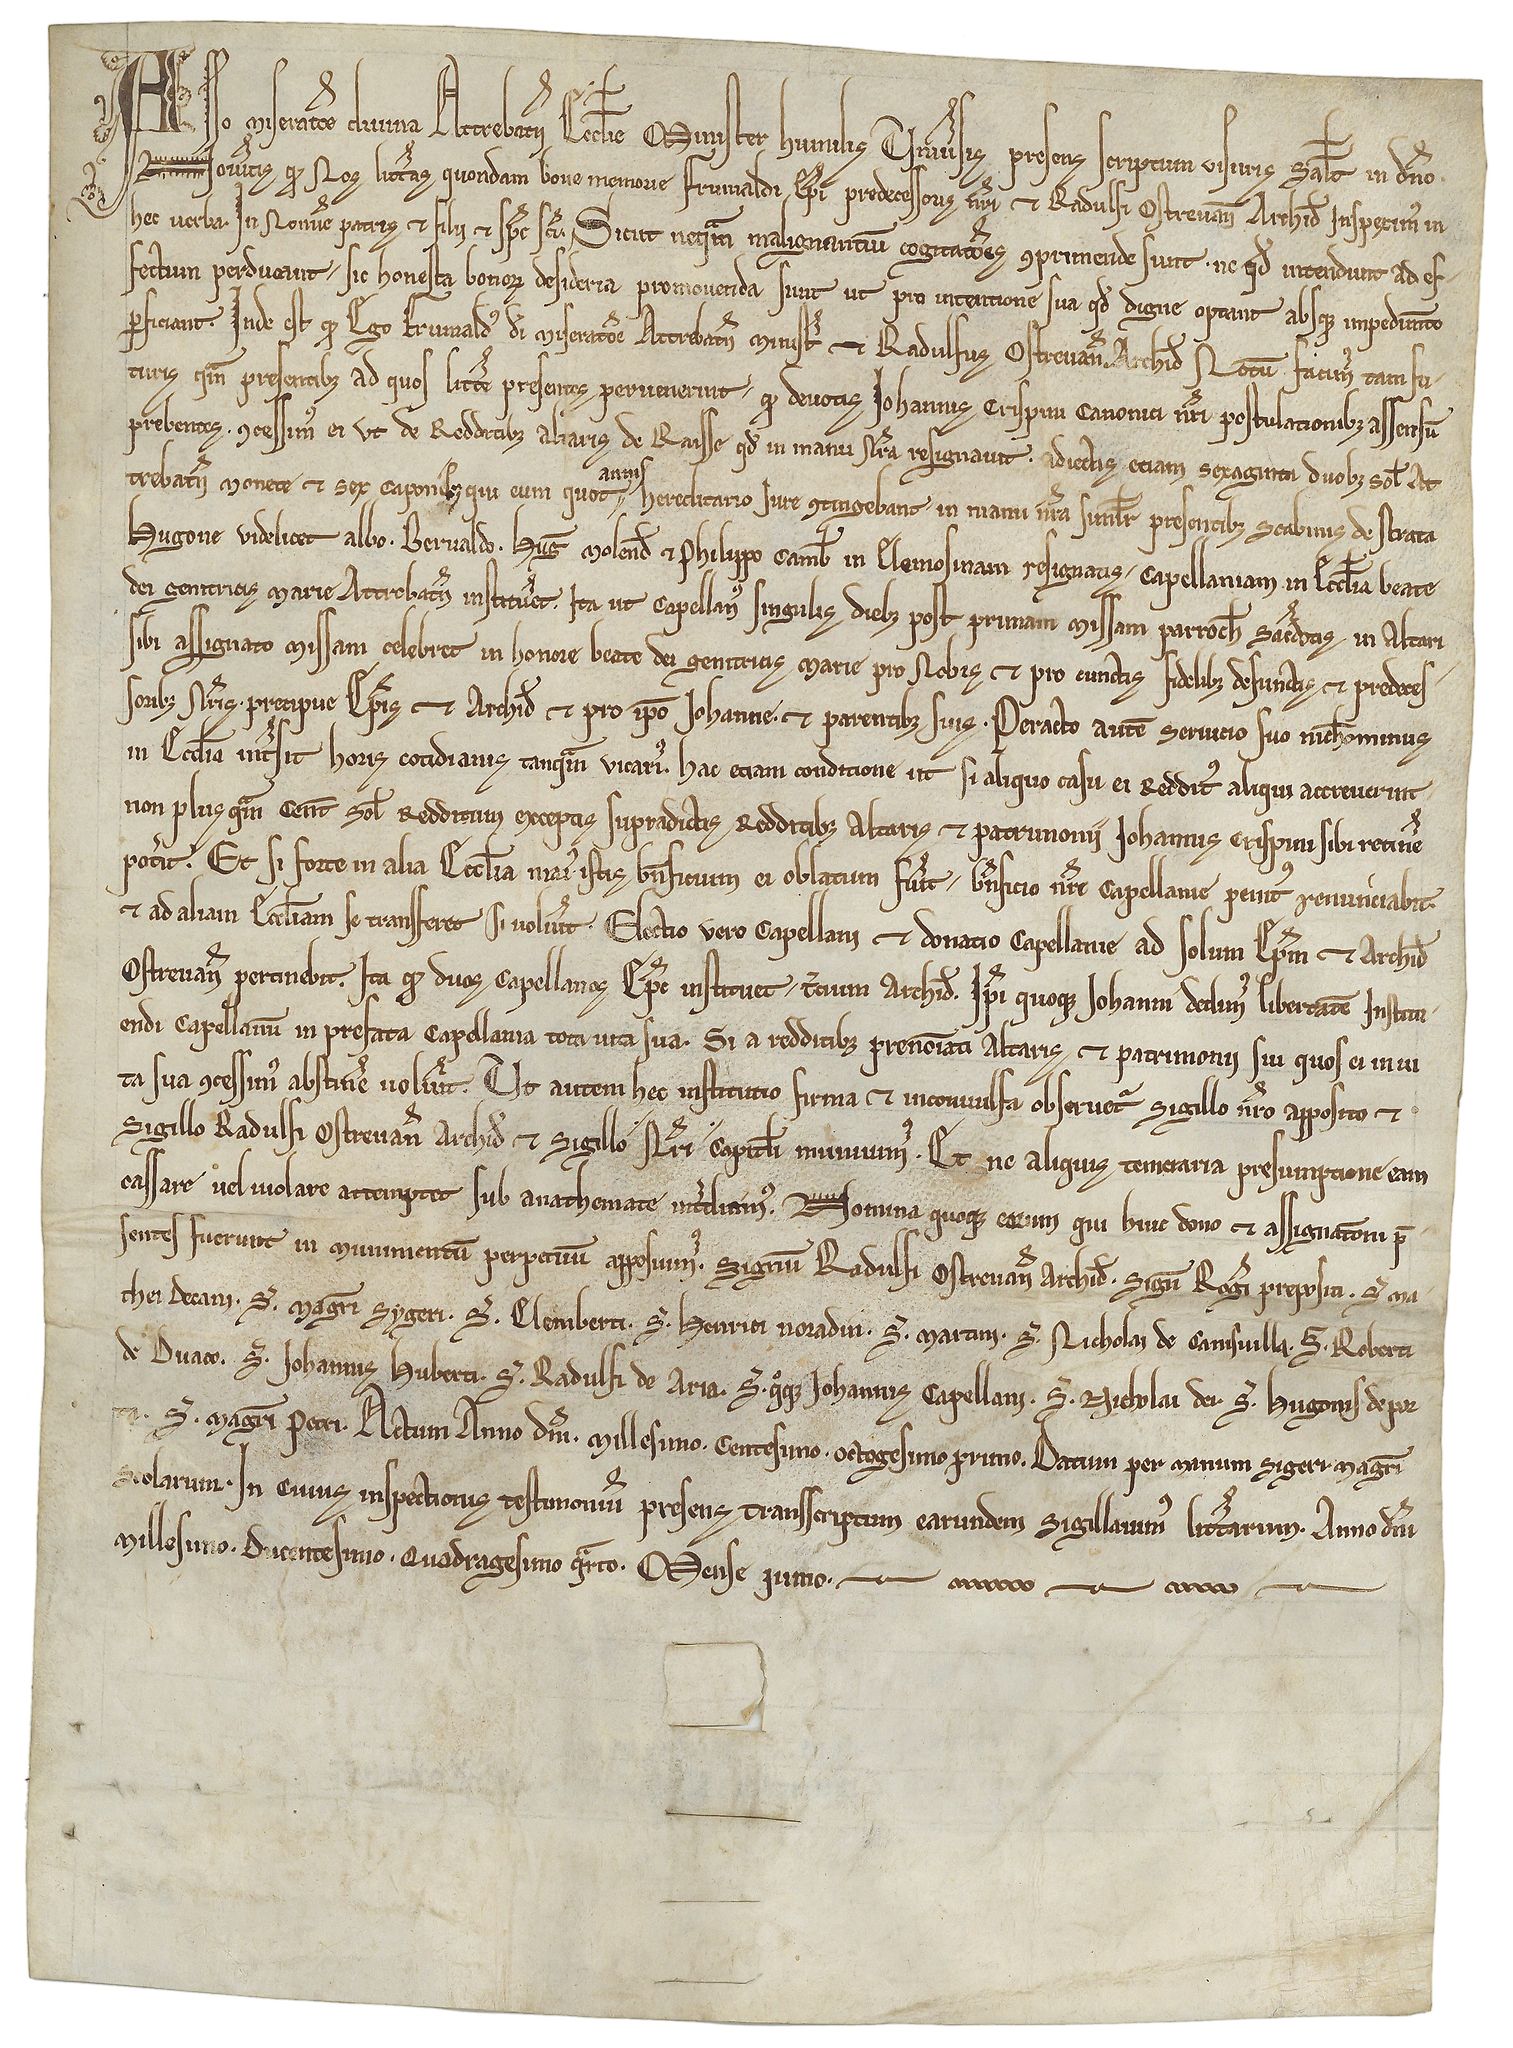 Asso miseratõe diuina Attrebatñ Ecclie Minister humilis Uniũsis presens scriptum visuris Salt in dño.
Noũitis qͥ Nos littas quondam bone memorie Frumaldi Epi predecessoris nri et Radulfi Ostreuañ Archid Inspeximꝰ in
hec uerba. In Nomine patris et filii et spc sci. Sicut neqͣm malignantiũ cogitatões ꝯprimende sunt. ne qd intendunt ad ef-
fectum perducant, sic honesta bonoꝝ desideria promouenda sunt ut pro intentione sua qd digne optant absqꝫ impedimto
ꝑficiant. Inde est qͥ Ego Frumaldꝰ di miseratõe Attrebatñ minist et Radulfus Ostreuañ Archid Notũ facimꝰ tam fu-
turis qͣm presentibꝫ ad quos litte presentes peruenerint, qͥ deuotis Johannis Crispini Canonici nri postulationibꝫ assensũ
prebentes. ꝯcessimꝰ ei ut de Redditibꝫ altaris de Raisse qd in manu Nra resignauit. adiectis etiam sexaginta duobꝫ sol At
trebatñ monete et sex caponibꝫ qui eum quot annis hereditario Iure ꝯtingebant in manu nra similr presentibꝫ Scabinis de strata
Hugone videlicet albo. Bernaldo. Hug Molend et Philippo Camb in Elemosinam resignatis, Capellaniam in Ecclia beate
dei genitricis Marie Attrebatñ institueret. Ita ut Capellanꝰ singulis diebꝫ post primam missam parroch sacdotis in Altari
sibi assignato missam celebret in honore beate dei genitricis Marie pro Nobis et pro cunctis fidelibꝫ defunctis et predeces-
soribꝫ Nris. precipue Epis et Archid et pro ipo Iohanne. et parentibꝫ suis. Peracto autẽ seruicio suo nichominus
in Ecclia intsit horis cotidianis tanqͣm vicariꝰ. hac etiam conditione ut si aliquo casu ei Redditꝰ aliqui accreuerint,
non plus qͣm Cent Sol Redditum exceptis supradictis Redditibꝫ Altaris et patrimonii Johannis Crispini sibi retinẽ
potit. Et si forte in alia Ecclia maiꝰ istis bnficium ei oblatum fuit, bnficio nre Capellanie penitꝰ renunciabit.
et ad aliam Eccliam se transferet si uoluit. Electio vero Capellani et donatio Capellanie ad solum Epm et Archid
Ostreuañ pertinebit. Ita qͥ duos Capellanos Epc instituet, tcium Archid. Ipi quoqꝫ Johanni dedimꝰ libertatẽ Institu-
endi Capellanũ in prefata Capellania tota uita sua. Si a redditibꝫ prenoiati Altaris et patrimonii sui quos ei in ui
ta sua ꝯcessimꝰ abstinẽ uoluit. Ut autem hec institutio firma et inconuulsa obseruet Sigillo nro apposito et
Sigillo Radulfi Ostreuañ Archid et Sigillo Nri Capitli muniuimꝰ. Et ne aliquis temeraria presumptione eam
cassare uel uiolare attemptet sub anathemate intdicimꝰ. Nomina quoqꝫ eorum qui huic dono et assignatõni p̄-
sentes fuerunt in munimentũ perpetuũ apposuimꝰ. Signũ Radulfi Ostreuañ Archid. Signũ Rogi prepositi. S. Ma-
thei Decani. S. Magri Sygeri. S. Clemberti. S. Henrici noradin. S. Martini. S. Nicholai de Canisuilla. S. Roberti
de Duaco. S. Johannis Huberti. S. Radulfi de Aria. S. qͦqꝫ Johannis Capellani. S. Nicholai dei. S. Hugonis de por
ta. S. Magri Petri. Actum Anno dni. Millesimo. Centesimo. octogesimo primo. Datum per manum Sigeri Magri
Scolarum. In cuius inspectionis testimoniũ presens transscriptum earundem sigillauimꝰ littarum. Anno dni
Millesimo. Ducentesimo. Quadragesimo qͣrto. Mense iunio.